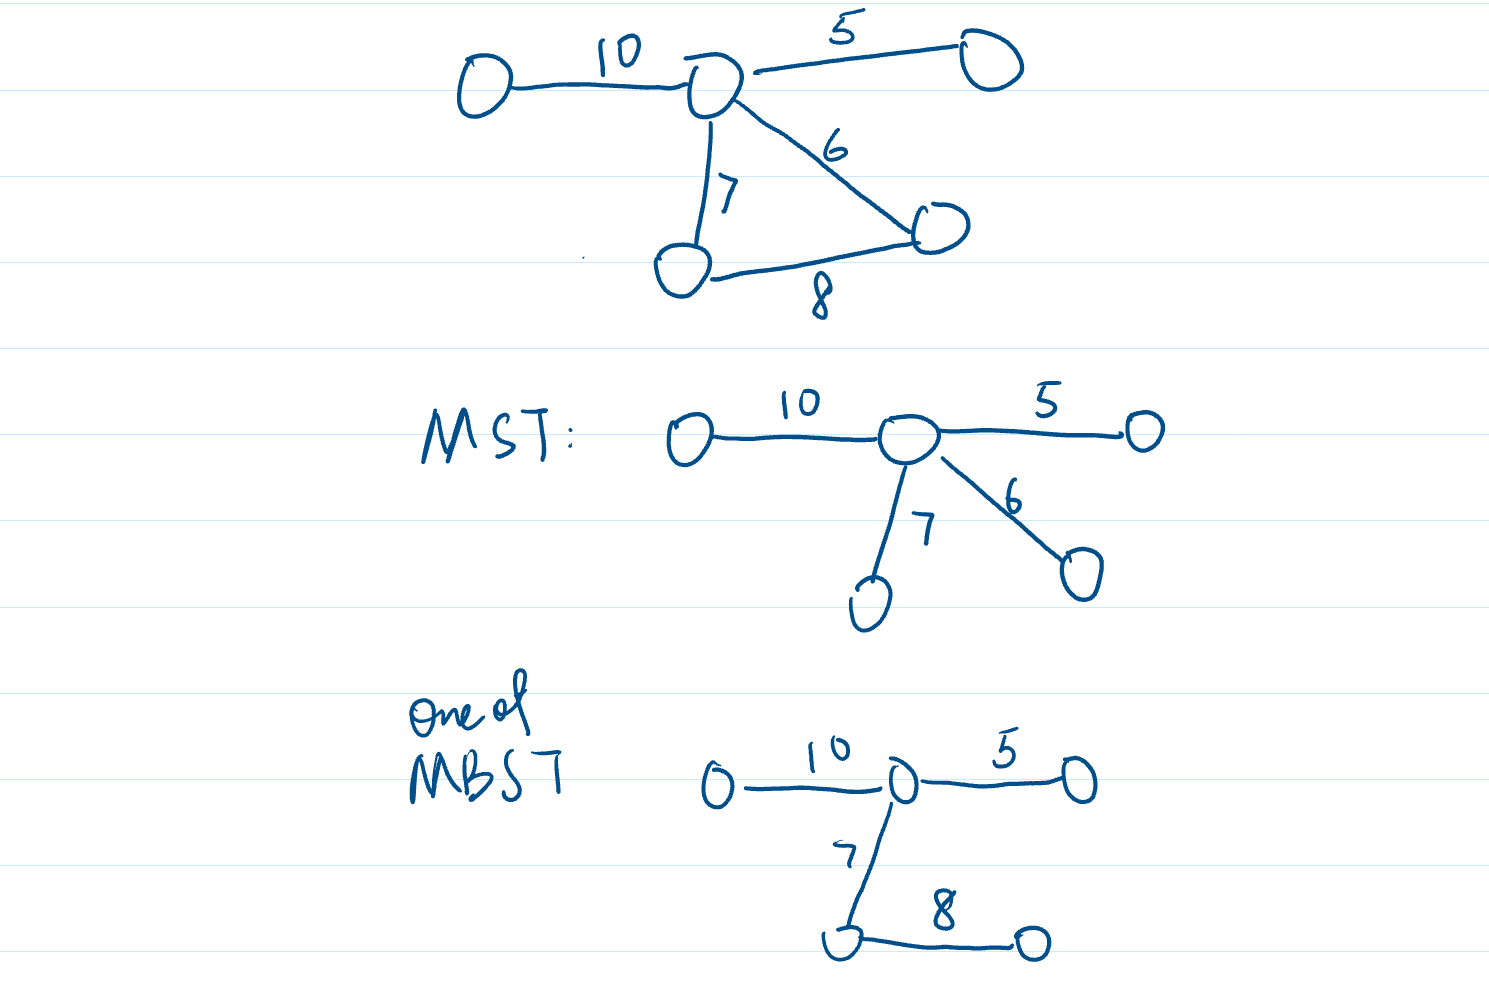 10 5
6
7
8
MST: 10 5
6
7
One of
MBST 10 5
7
8